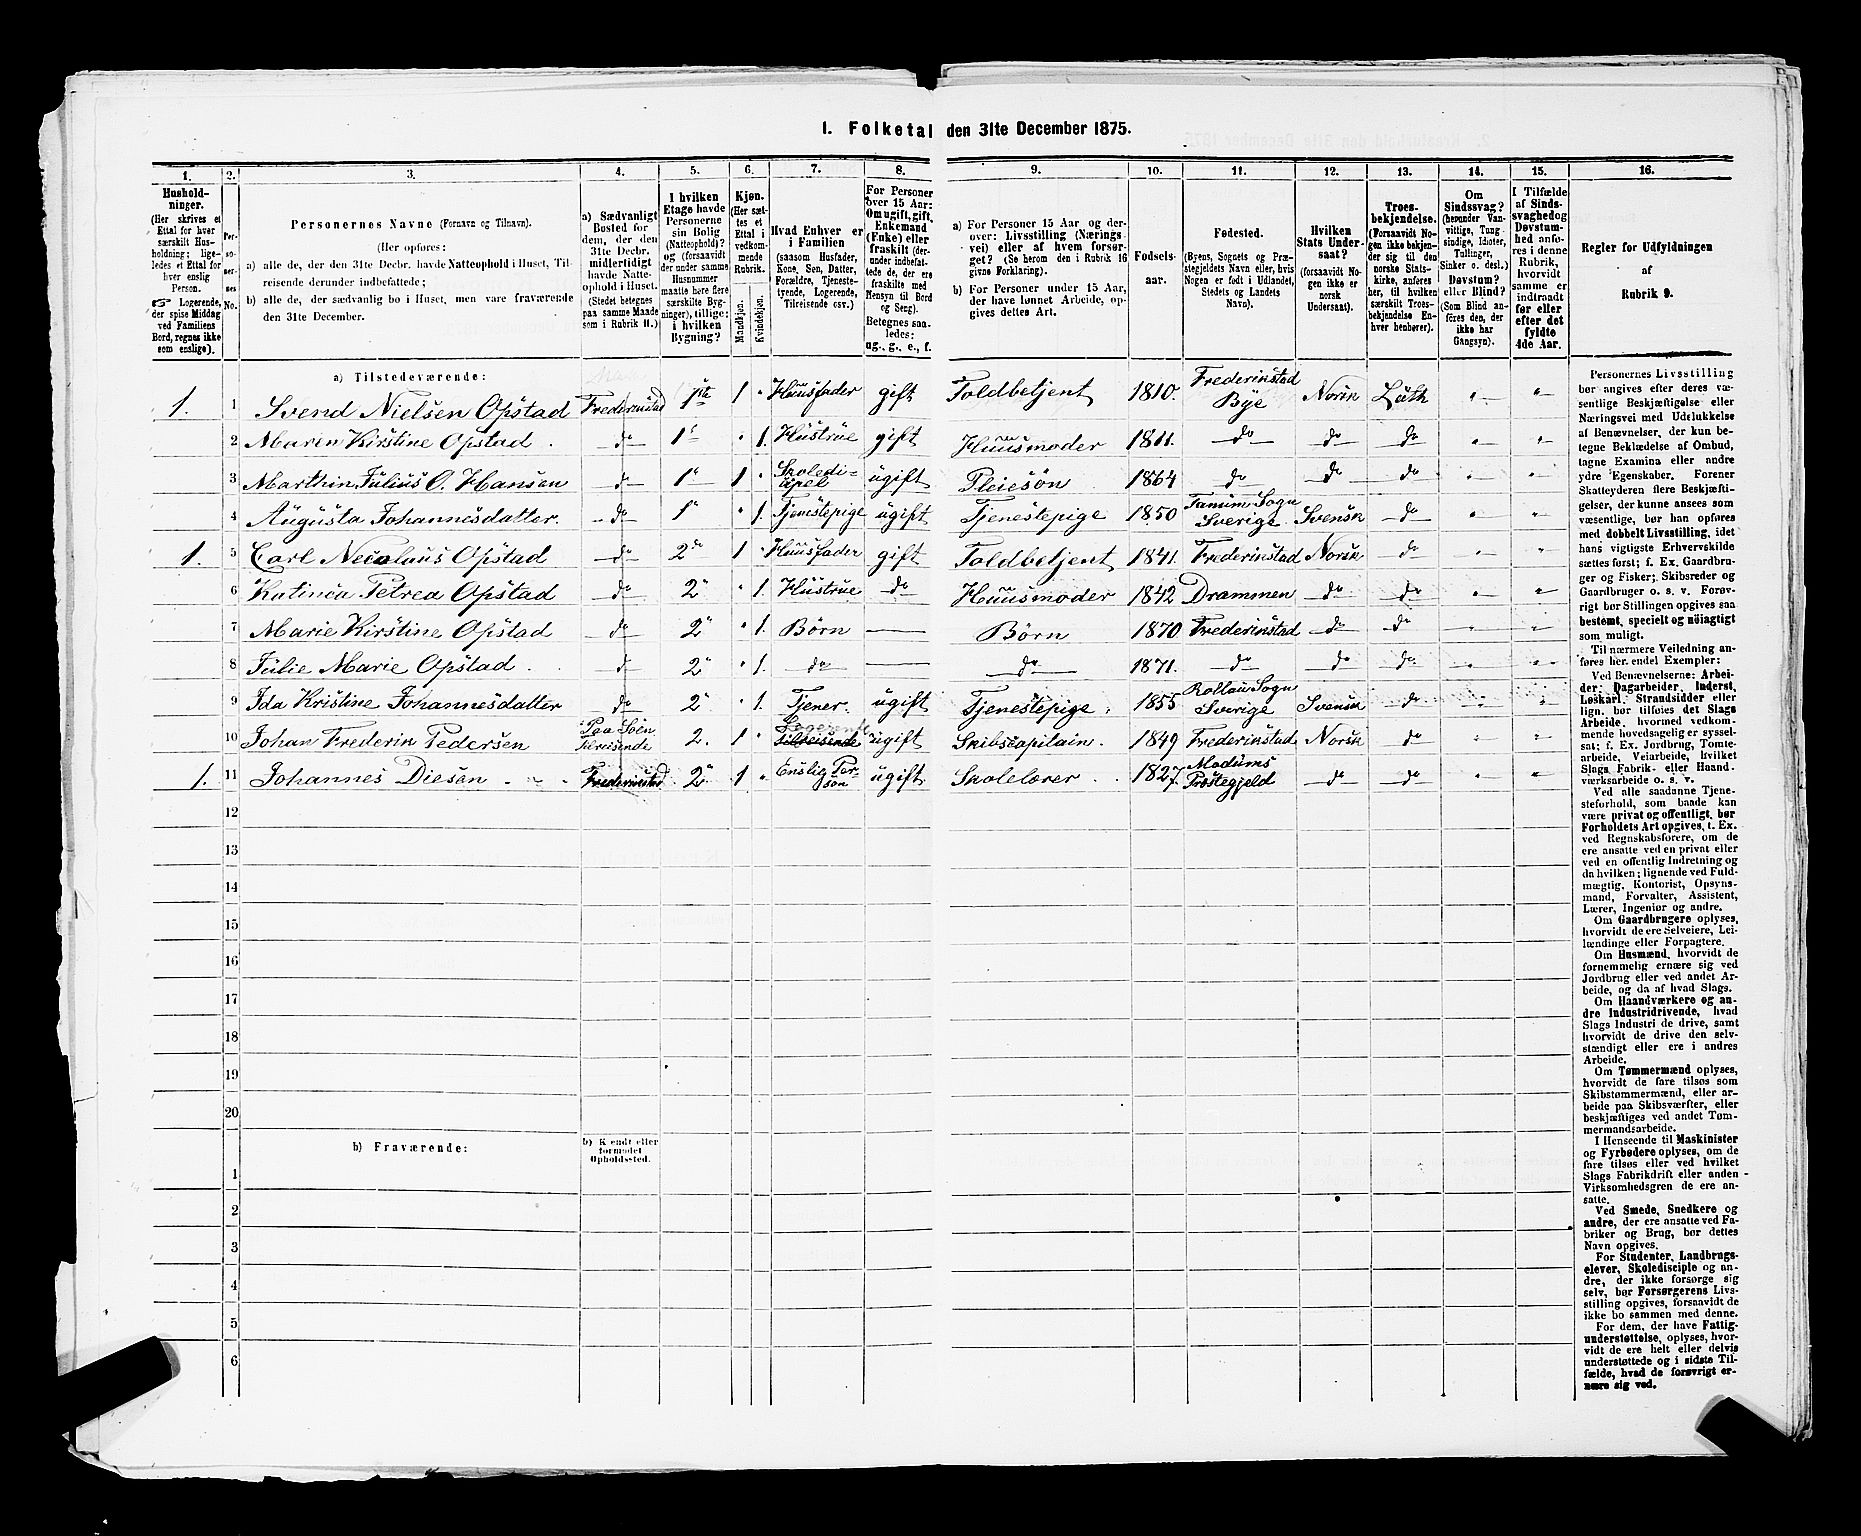 1. Folketal den 31te December 1875.
1.
2.
3.
4.
5.
6.
7.
8.
9.
10.
11.
12.
13.
14.
15.
16.
Hushold-
ninger.
(Her skrives et
Ettal for hver
særskilt Hus-
holdning; lige-
ledes et Ettal for
hver enslig
Person.
☞ Logerende,
der spise Middag
ved Familiens
Bord, regnes ikke
som enslige).
Per-
so-
ner-
nes
No.
Personernes Navne (Fornavn og Tilnavn).
(Her opføres:
a) alle de, der den 31te Decbr. havde Natteophold i Huset, Til-
reisende derunder indbefattede;
b) alle de, der sædvanlig bo i Huset, men vare fraværende
den 31te December.
a) Sædvanligt
Bosted for
dem, der den
31te Decbr.
midlertidigt
havde Natte-
ophold i Huset.
(Stedet betegnes
paa samme Maade
som i Rubrik 11.)
I hvilken
Etage havde
Personerne
sin Bolig
(Natteophold)?
og (forsaavidt
der under samme
Husnummer
maatte høre flere
særskilte Byg-
ninger), tillige:
i hvilken
Bygning?
Kjøn.
(Her sæt-
tes et
Ettal i
vedkom-
mende
Rubrik.
Mandkjøn.
Kvindekjøn.
Hvad Enhver er
i Familien
(saasom Husfader,
Kone, Søn, Datter,
Forældre, Tjeneste-
tyende, Logerende,
Tilreisende osv.)
For Personer
over 15 Aar:
Om ugift, gift,
Enkemand
(Enke) eller
fraskilt (der-
under indbefat-
tede de, der ere
fraskilte med
Hensyn til Bord
og Seng).
Betegnes saa-
ledes:
ug., g., e., f.
a) For Personer 15 Aar og der-
over: Livsstilling (Nærings-
vei) eller af hvem forsør-
get? (Se herom den i Rubrik 16
givne Forklaring).
b) For Personer under 15 Aar,
der have lønnet Arbeide, op-
gives dettes Art.
Fødsels-
aar.
Fødested.
(Byens, Sognets og Præ-
stegjeldets Navn eller, hvis
Nogen er født i Udlandet,
Stedets og Landets
Navn).
Hvilken
Stats Under-
saat?
(forsaavidt No-
gen ikke er
norsk
Undersaat).
Troes-
bekjendelse.
(Forsaavidt No-
gen ikke bekjen-
der sig til den
norske Stats-
kirke, anføres
her, til hvilken
særskilt Troes-
bekjendelse En-
hver henhører).
Om
Sindssvag?
(herunder Van-
vittige, Tung-
sindige, Idioter,
Tullinger,
Sinker o. desl.)
Døvstum?
eller Blind?
(Som Blind an-
føres den, der
ikke har
Gangsyn).
I Tilfælde
af Sinds-
svaghed og
Døvstum-
hed anfø-
res i denne
Rubrik,
hvorvidt
samme er
indtraadt
før eller
efter det
fyldte
4de Aar.
Regler for Udfyldningen
af
Rubrik 9.
a) Tilstedeværende:
1. 1 Svend Nielsen Opstad Frederikstad 1ste 1 " Huusfader gift Toldbetjent 1810. Frederikstad Bye Norsk Luth " "
2 Maren Kirstine Opstad. do 1" " 1. Hustrue gift Huusmoder 1811. do do do " "
3 Marthin Julius O. Hansen do 1" 1 " Skoledi- sipel ugift Pleiesøn 1864 do do do " "
4 Augusta Johannesdatter. do 1" " 1. Tjenestepige ugift Tjenestepige 1850 Tanum Sogn Sverige Svensk do " "
1. 5 Carl Nicolaus Opstad do 2de 1 " Huusfader gift Toldbetjent 1841. Frederikstad Norsk do " "
6 Katinca Petrea Opstad do 2" " 1. Hustrue do Huusmoder 1842 Drammen do do " "
7 Marie Kirstine Opstad do 2" " 1. Børn — Børn 1870 Frederikstad do do " "
8 Julie Marie Opstad. do 2" " 1. do — do 1871. do do do " "
9 Ida Kristine Johannesdatter do 2" " 1. Tjener. ugift Tjenestepige. 1855 Sogn Sverige Svensk do " "
10 Johan Frederik Pedersen Paa Søen tilreisende 2. 1 " Logerende Tilreisende ugift Skibscapitain. 1849 Frederikstad Norsk do " "
1. 11 Johannes Diesen Frederikstad 2" 1 " Enslig Per- son ugift Skolelærer 1827. Modums Præstegjeld do do " "
12
13
14
15
16
17
18
19
20
b) Fraværende:
b) Kjendt eller
formodet
Opholdssted.
1
2
3
4
5
6
Personernes Livsstilling
bør angives efter deres væ-
sentlige Beskjæftigelse eller
Næringsvei med Udelukkelse
af Benævnelser, der kun be-
tegne Beklædelse af Ombud,
tagne Examina eller andre
ydre Egenskaber. Forener
Skatteyderen flere Beskjæfti-
gelser, der kunne ansees som
væsentlige, bør han opføres
med dobbelt Livsstilling, idet
hans vigtigste Erhvervskilde
sættes først; f. Ex. Gaardbru-
ger og Fisker; Skibsreder og
Gaardbruger o. s. v. Forøv-
rigt bør Stillingen opgives saa
bestemt, specielt og nøiagtigt
som muligt.
Til nærmere Veiledning an-
føres her endel Exempler:
Ved Benævnelserne: Arbei-
der, Dagarbeider, Inderst,
Løskarl, Strandsidder eller
lign. bør tilføies det Slags
Arbeide, hvormed vedkom-
mende hovedsagelig er syssel-
sat; f. Ex. Jordbrug, Tomte-
arbeide, Veiarbeide, hvilket
Slags Fabrik- eller Haand-
værksarbeide o. s. v.
Ved alle saadanne Tjene-
steforhold, som baade kan
være privat og offentligt, bør
Forholdets Art opgives, t. Ex.
ved Regnskabsførere, om de
ere ansatte ved en privat eller
ved en offentlig Indretning og
da hvilken; lignende ved Fuld-
mægtig, Kontorist, Opsyns-
mand, Forvalter, Assistent,
Lærer, Ingeniør og andre.
Om Gaardbrugere oplyses,
hvorvidt de ere Selveiere, Lei-
lændinge eller Forpagtere.
Om Husmænd, hvorvidt de
fornemmelig ernære sig ved
Jordbrug eller ved andet Ar-
beide, og da af hvad Slags.
Om Haandværkere og an-
dre Industridrivende, hvad
Slags Industri de drive, samt
hvorvidt de drive den selv-
stændigt eller ere i andres
Arbeide.
Om Tømmermænd oplyses,
hvorvidt de fare tilsøs som
Skibstømmermænd, eller ar-
beide paa Skibsværfter, eller
beskjæftiges ved andet Tøm-
mermandsarbeide.
I Henseende til Maskinister
og Fyrbødere oplyses, om de
fare tilsøs eller ved hvilket
Slags Fabrikdrift eller anden
Virksomhedsgren de ere an-
satte.
Ved Smede, Snedkere og
andre, der ere ansatte ved Fa-
briker og Brug, bør dettes
Navn opgives.
For Studenter, Landbrugs-
elever, Skoledisciple og an-
dre, der ikke forsørge sig
selv, bør Forsørgerens Livs-
stilling opgives, forsaavidt de
ikke bo sammen med denne.
For dem, der have Fattig-
understøttelse, oplyses, hvor-
vidt de ere helt eller delvis
understøttede og i sidste Til-
fælde, hvad de forøvrigt er-
nære sig ved.